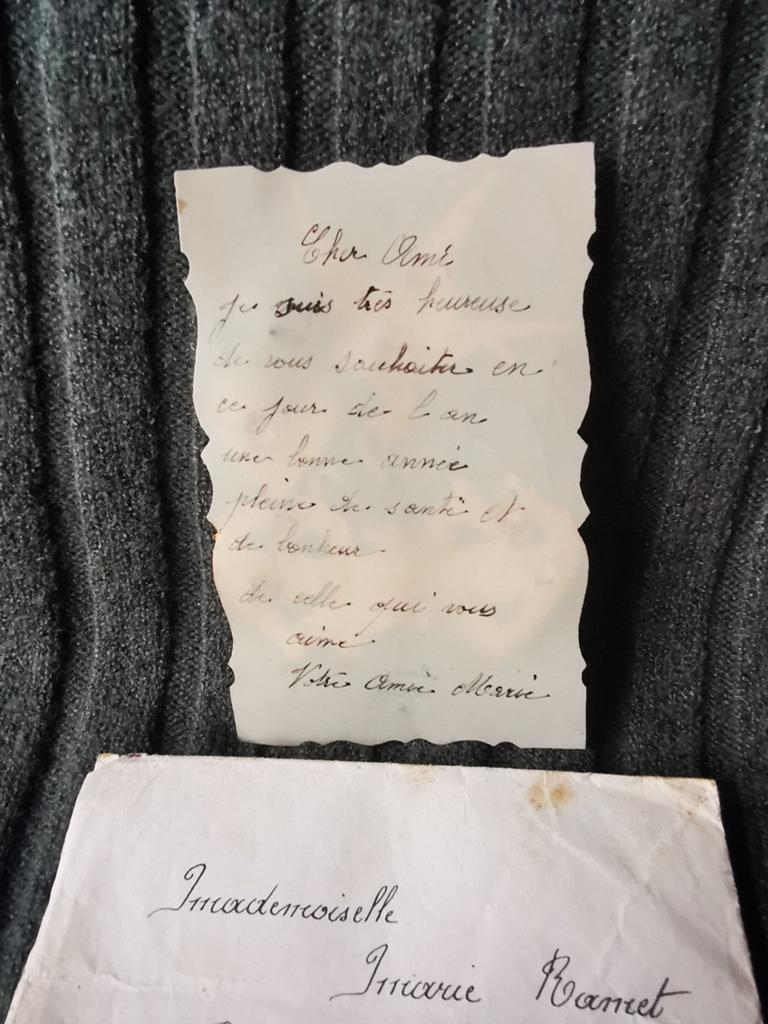 Cher Ami
je suis très heureuse
de vous souhaiter en
ce jour de l an
une bonne année
pleine de santé et
de bonheur
de celle qui vous
aime
Votre Amie Marie
Mademoiselle
Marie Ramet